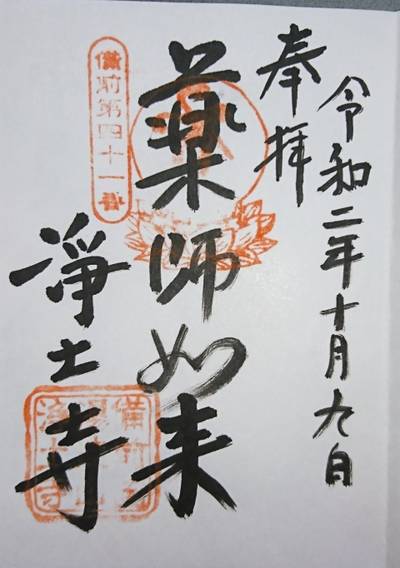 令和二年十月九日
奉拝
薬師如来
備前第四十一番
淨土寺